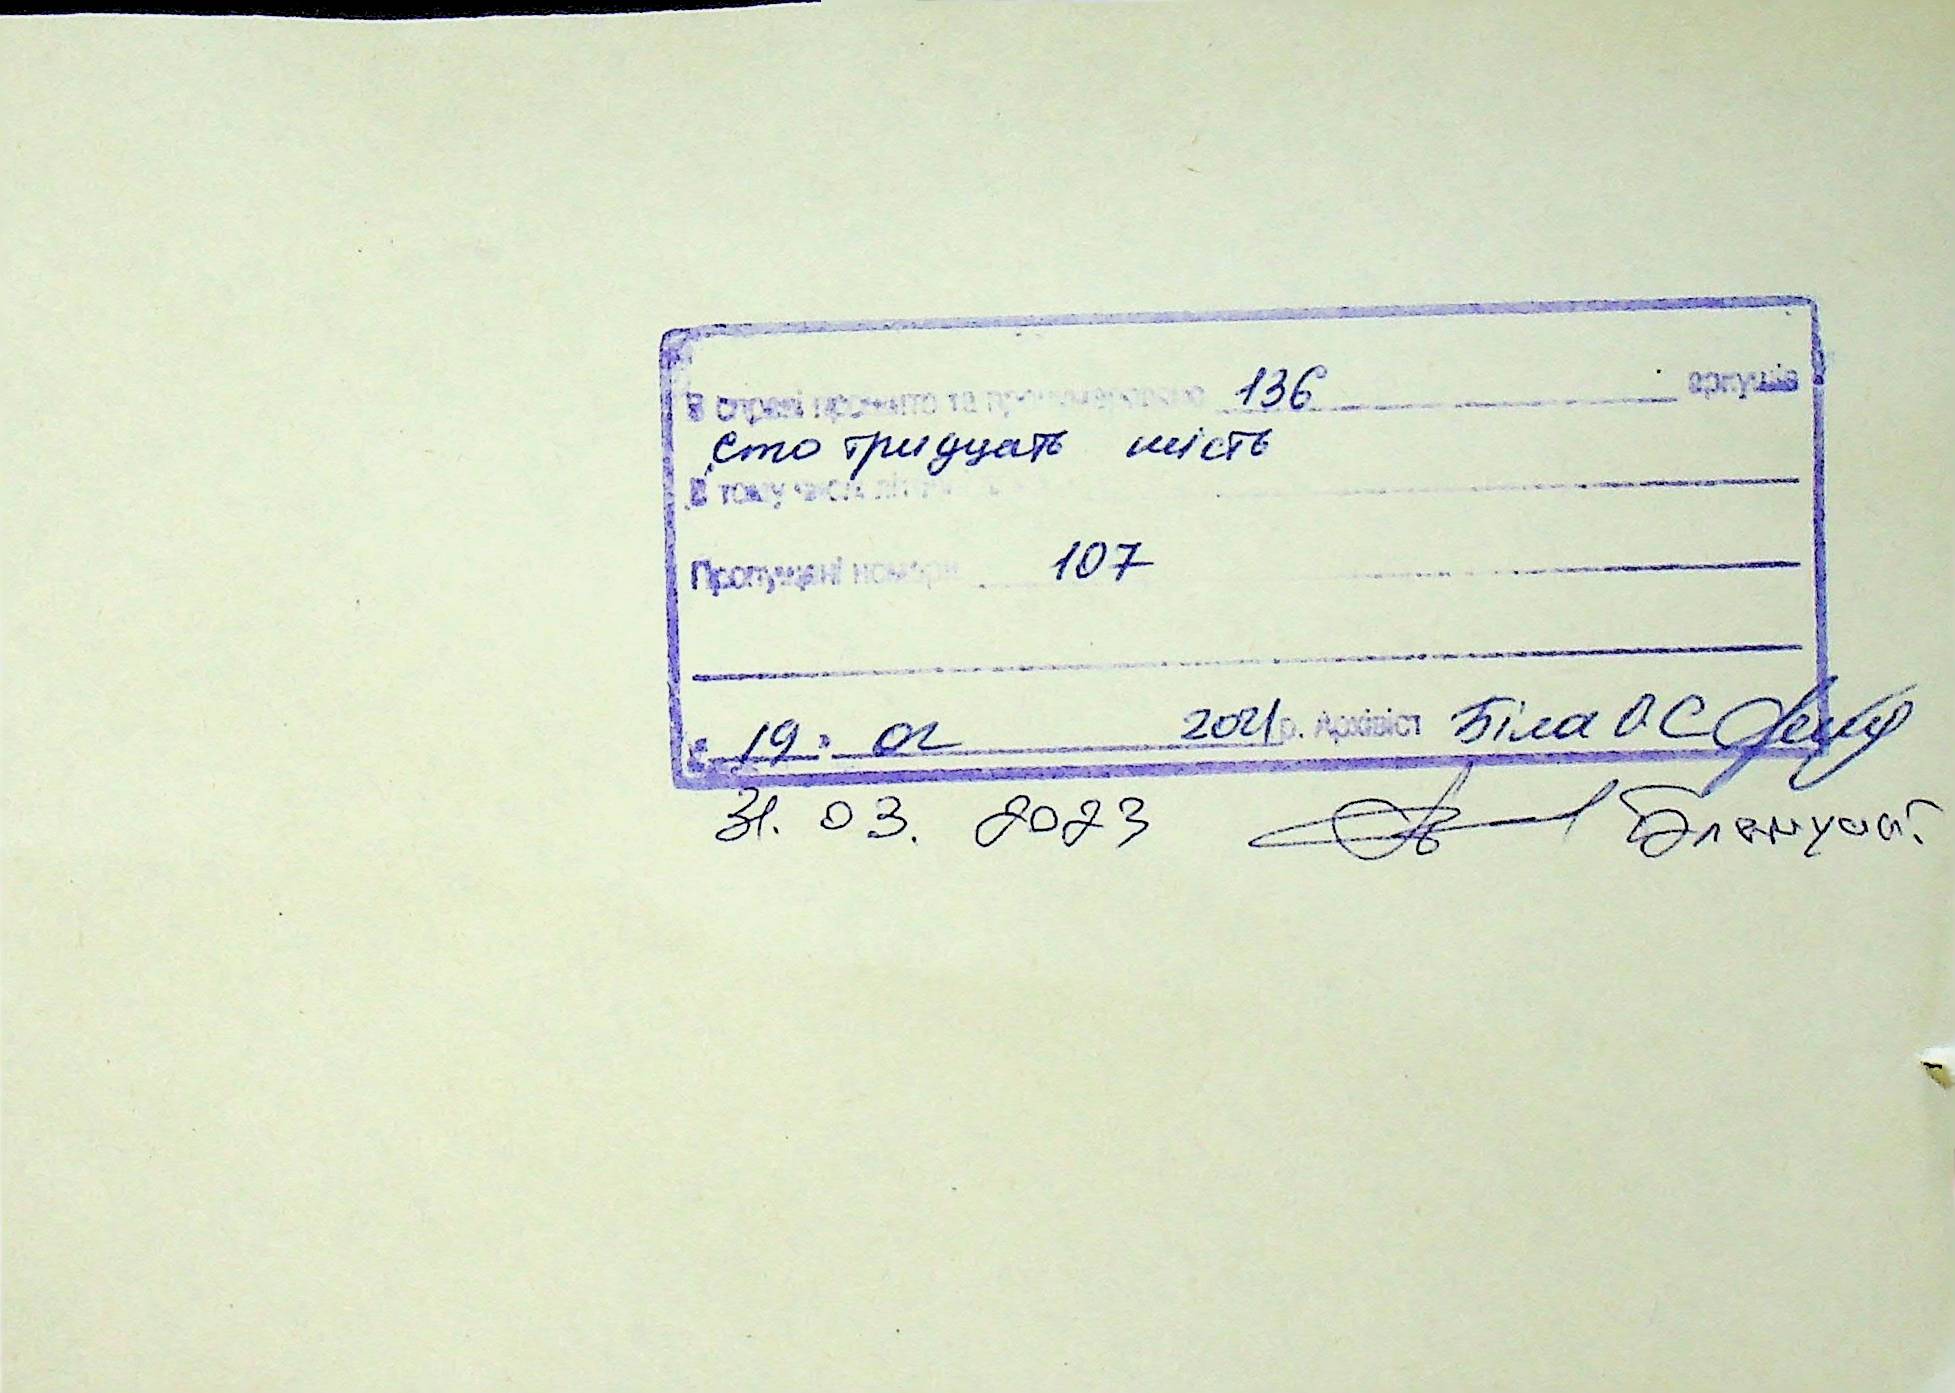 В справі прошито та пронумеровано 136 аркушів
сто тридцать шість
В тому числі літерні
Пропущені номери 107
« 19 » 02 2021 р. Архівіст Біла О С
31. 03. 2023